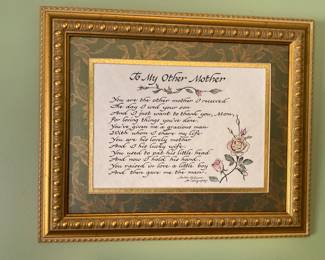 To My Other Mother
You are the other mother I received
The day I wed your son
And I just want to thank you, Mom,
For loving things you've done.
You've given me a gracious man
With whom I share my life
You are his lovely mother
And I his lucky wife.
You used to pat his little head
And now I hold his hand.
You raised in love a little boy
And then gave me the man.